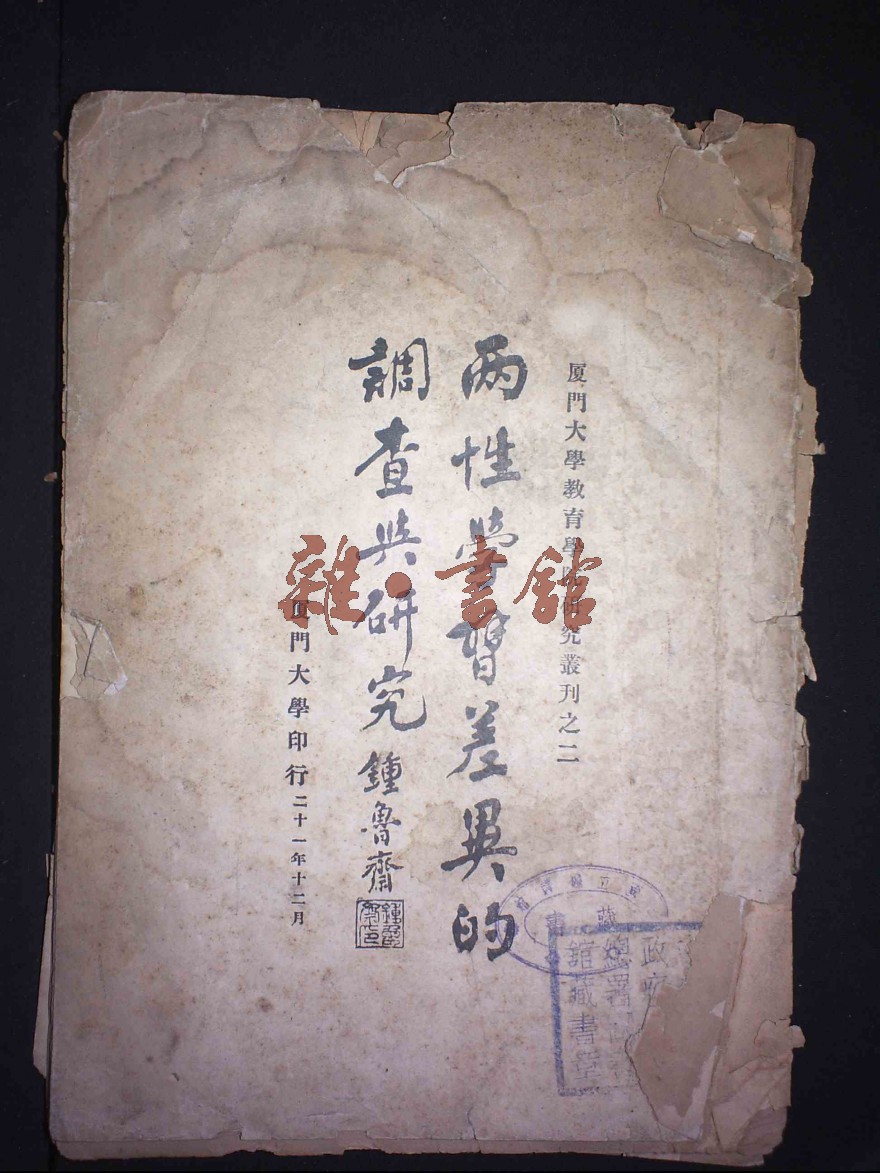 厦門大學教育學院研究叢刊之二
兩性學習差異的
調查與研究 鍾魯齋
鍾魯齋印
厦門大學印行 二十一年十二月
雜·書館
立
藏
書
政
總署
館藏書章